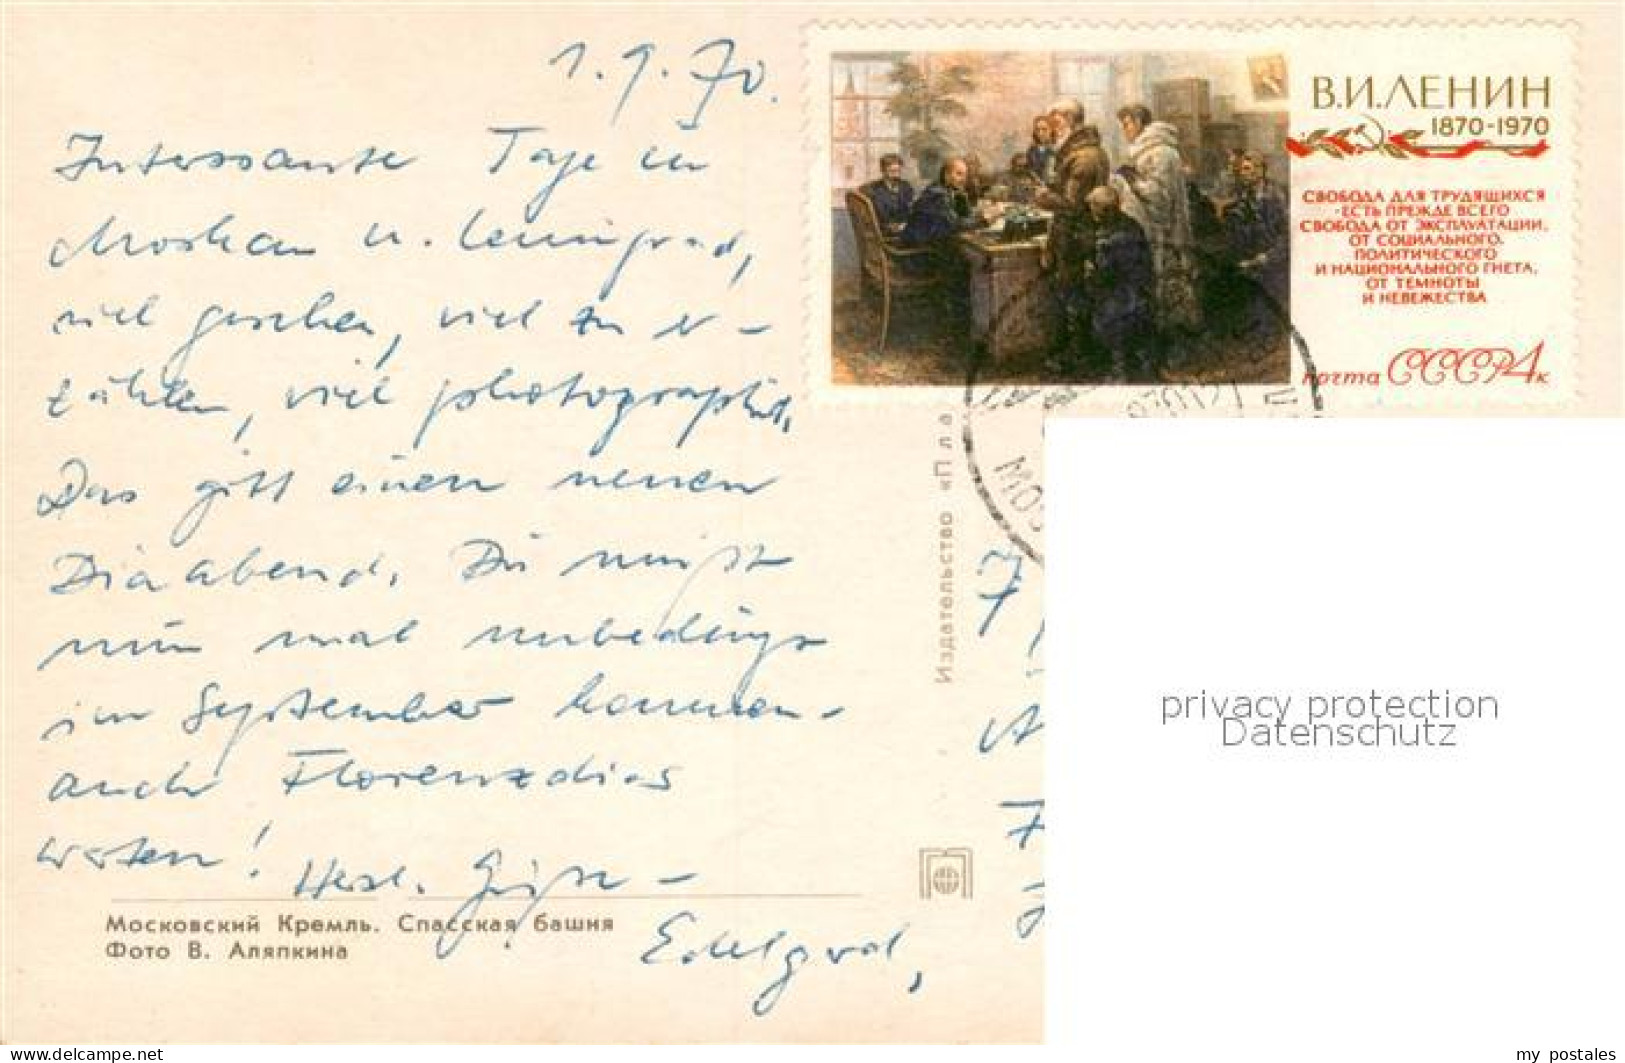 1.9.70.
Interessante Tage in
Moskau u. Leningrad,
viel gesehen, viel zu er-
zählen, viel photographiert.
Das gibt einen neuen
Diaabend. Du mußt
nun mal unbedingt
im September kommen -
auch Florenzdias
warten!
Herzl. Grüße -
Edelgard,
Московский Кремль. Спасская башня
Фото В. Аляпкина
Издательство «Пла
В.И.ЛЕНИН
1870-1970
СВОБОДА ДЛЯ ТРУДЯЩИХСЯ
-ЕСТЬ ПРЕЖДЕ ВСЕГО
СВОБОДА ОТ ЭКСПЛУАТАЦИИ,
ОТ СОЦИАЛЬНОГО,
ПОЛИТИЧЕСКОГО
И НАЦИОНАЛЬНОГО ГНЕТА,
ОТ ТЕМНОТЫ
И НЕВЕЖЕСТВА
почта СССР 4к
privacy protection
Datenschutz
www.delcampe.net
my_postales